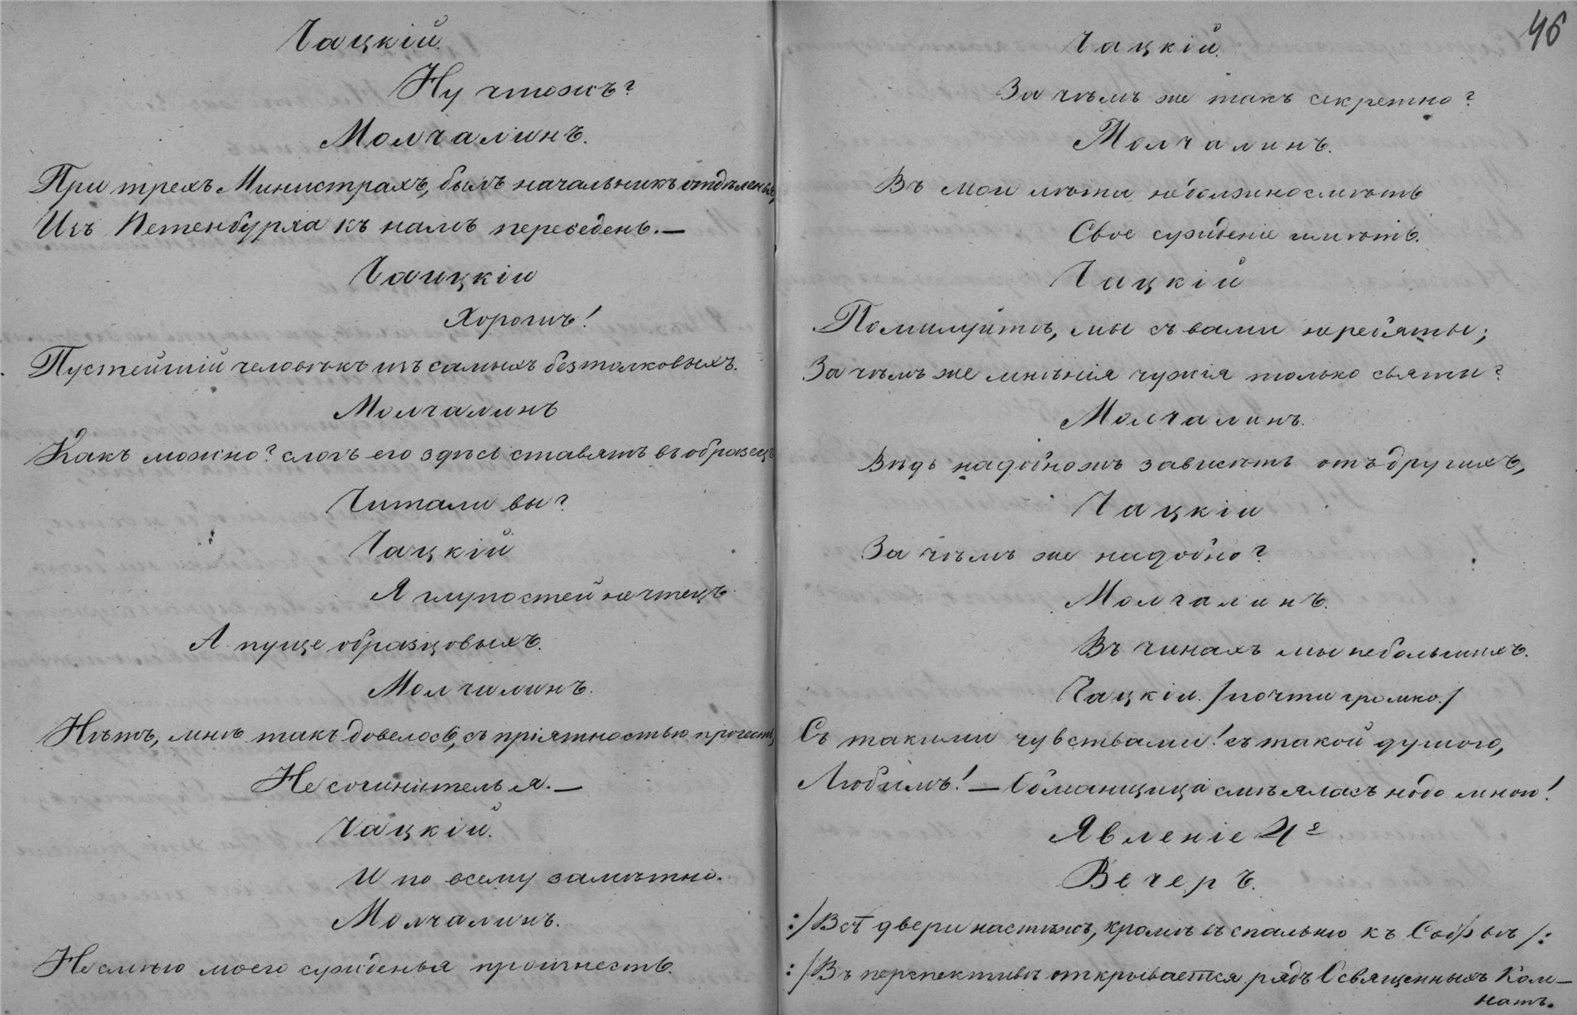 Чацкій.
Ну чтожъ?
Молчалинъ.
При трехъ Министрахъ, былъ начальникъ отдѣленья,
Изъ Петенбурха къ намъ переведенъ.—
Чацкій
Хорошъ!
Пустейшій человѣкъ изъ самыхъ безтолковыхъ.
Молчалинъ
Какъ можно? слогъ его здѣсь ставятъ въ образецъ
Читали вы?
Чацкій
Я глупостей не чтецъ
А пуще образцовыхъ.
Молчалинъ.
Нѣтъ, мнѣ такъ довелось, съ пріятностью прочесть,
Не сочинитель я.—
Чацкій.
И по всему замѣтно.
Молчалинъ.
Не смѣю моего сужденья произнесть.
46
Чацкій.
За чѣмъ же такъ секретно?
Молчалинъ.
Въ мои лѣта недолжно смѣть
Свое сужденіе имѣть.
Чацкій
Помилуйте, мы съ вами не ребяты;
За чѣмъ же мнѣнія чужія только святы?
Молчалинъ.
Вѣдь надобножъ зависѣть отъ другихъ,
Чацкій
За чѣмъ же надобно?
Молчалинъ.
Въ чинахъ мы небольшихъ.
Чацкій. /почти громко./
Съ такими чувствами! съ такой душою,
Любимъ!— Обманщица смѣялась надо мною!
Явленіе 4е
Вечеръ.
:/Всѣ двери настежъ, кромѣ въ спальню къ Софьѣ/:
:/Въ перспективѣ открывается рядъ Освященныхъ Ком-
натъ.